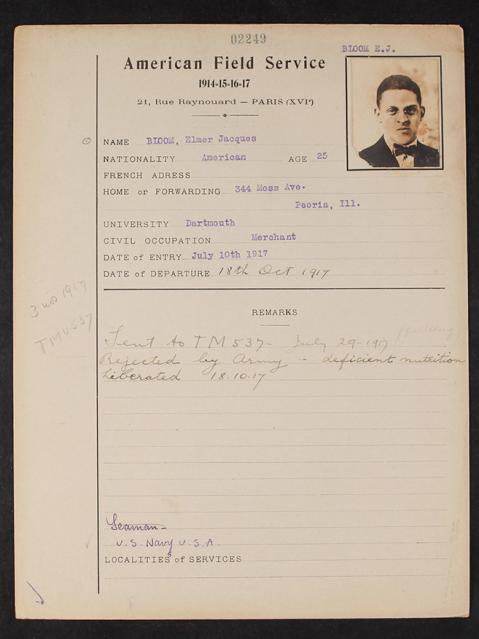 02249
BLOOM E.J.
American Field Service
1914-15-16-17
21, Rue Raynouard — PARIS (XVIe)
NAME BLOOM, Elmer Jacques
NATIONALITY American AGE 25
FRENCH ADRESS
HOME or FORWARDING 344 Moss Ave.
Peoria, Ill.
UNIVERSITY Dartmouth
CIVIL OCCUPATION Merchant
DATE of ENTRY July 10th 1917
DATE of DEPARTURE 18th Oct 1917
3 mo 1917
TMU 537
REMARKS
Sent to TM 537 - July 29-1917
Rejected by Army - deficient nutrition
Liberated 18.10.17
Seaman -
U.S. Navy U.S.A.
LOCALITIES of SERVICES